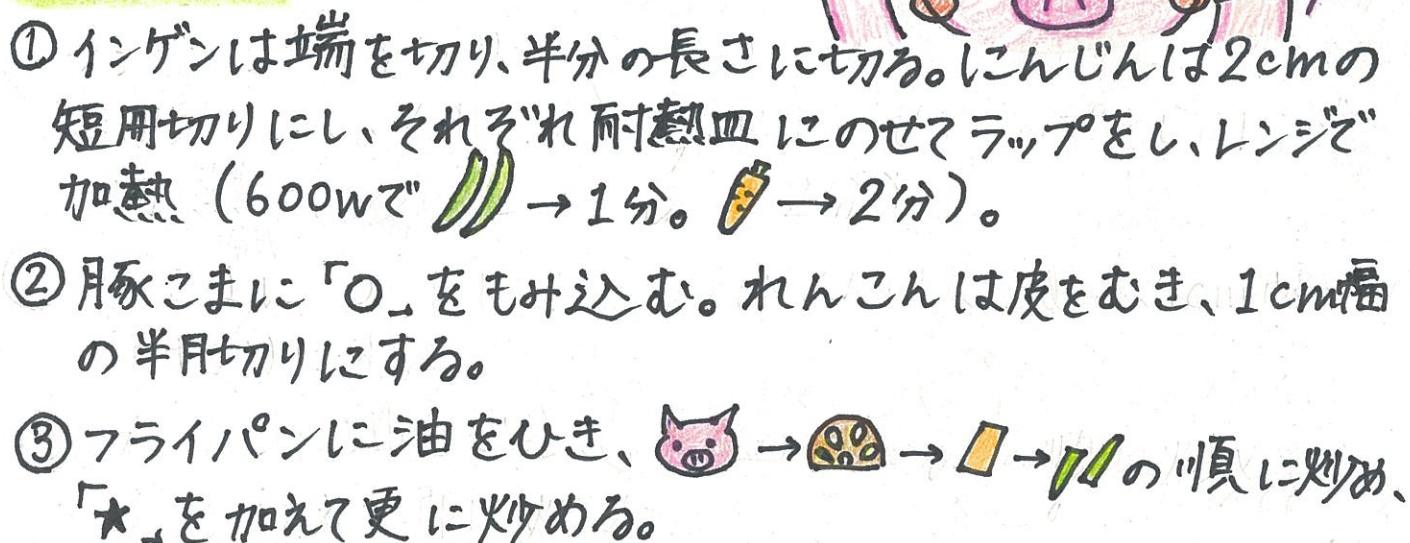 ①インゲンは端を切り、半分の長さに切る。にんじんは2cmの
短冊切りにし、それぞれ耐熱皿にのせてラップをし、レンジで
加熱(600wで→1分。→2分)。
②豚こまに「○」をもみ込む。れんこんは皮をむき、1cm幅
の半月切りにする。
③フライパンに油をひき、→→→の順に炒め、
「★」を加えて更に炒める。